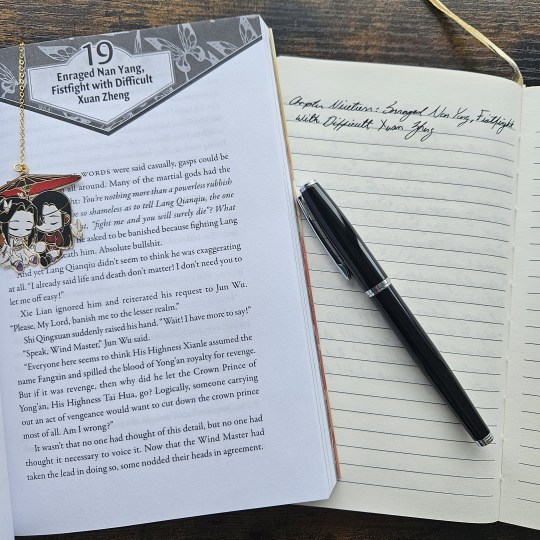 19
Enraged Nan Yang,
Fistfight with Difficult
Xuan Zheng
WORDS were said casually, gasps could be
all around. Many of the martial gods had the
ht: You're nothing more than a powerless rubbish
so shameless as to tell Lang Qianqiu, the one
"fight me and you will surely die"? What
asked to be banished because fighting Lang
death him. Absolute bullshit.
And yet Lang Qianqiu didn't seem to think he was exaggerating
at all. "I already said life and death don't matter! I don't need you to
let me off easy!"
Xie Lian ignored him and reiterated his request to Jun Wu.
"Please, My Lord, banish me to the lesser realm."
Shi Qingxuan suddenly raised his hand. "Wait! I have more to say!"
"Speak, Wind Master," Jun Wu said.
"Everyone here seems to think His Highness Xianle assumed the
name Fangxin and spilled the blood of Yong'an royalty for revenge.
But if it was revenge, then why did he let the Crown Prince of
Yong'an, His Highness Tai Hua, go? Logically, someone carrying
out an act of vengeance would want to cut down the crown prince
most of all. Am I wrong?"
It wasn't that no one had thought of this detail, but no one had
thought it necessary to voice it. Now that the Wind Master had
taken the lead in doing so, some nodded their heads in agreement.
Chapter Nineteen: Enraged Nan Yang, Fistfight
with Difficult Xuan Zheng